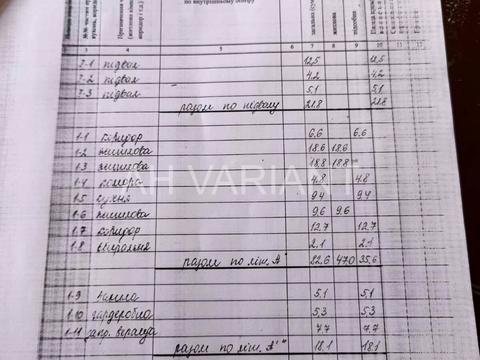 по внутрішньому обміру
3 4 5 6 7 8 9 10 11 12
2-1 підвал 12,5 12,5
2-2 підвал 4,2 4,2
2-3 підвал 5,1 5,1
разом по підвалу 21,8 21,8
1-1 коридор 6,6 6.6
1-2 житлова 18.6 18.6
1-3 житлова 18,8 18.8
1-4 комора 4.8 4.8
1-5 кухня 9.4 9.4
1-6 житлова 9.6 9.6
1.7 коридор 12.7 12.7
1-8 вбиральня 2.1 2.1
разом по літ. А 47.0 35,6
1-9 ванна 5.1 5.1
1-10 гардеробна 5.3 5.3
1-11 7.7 7.7
разом по літ. А' 18.1 18.1
AH VARIANT